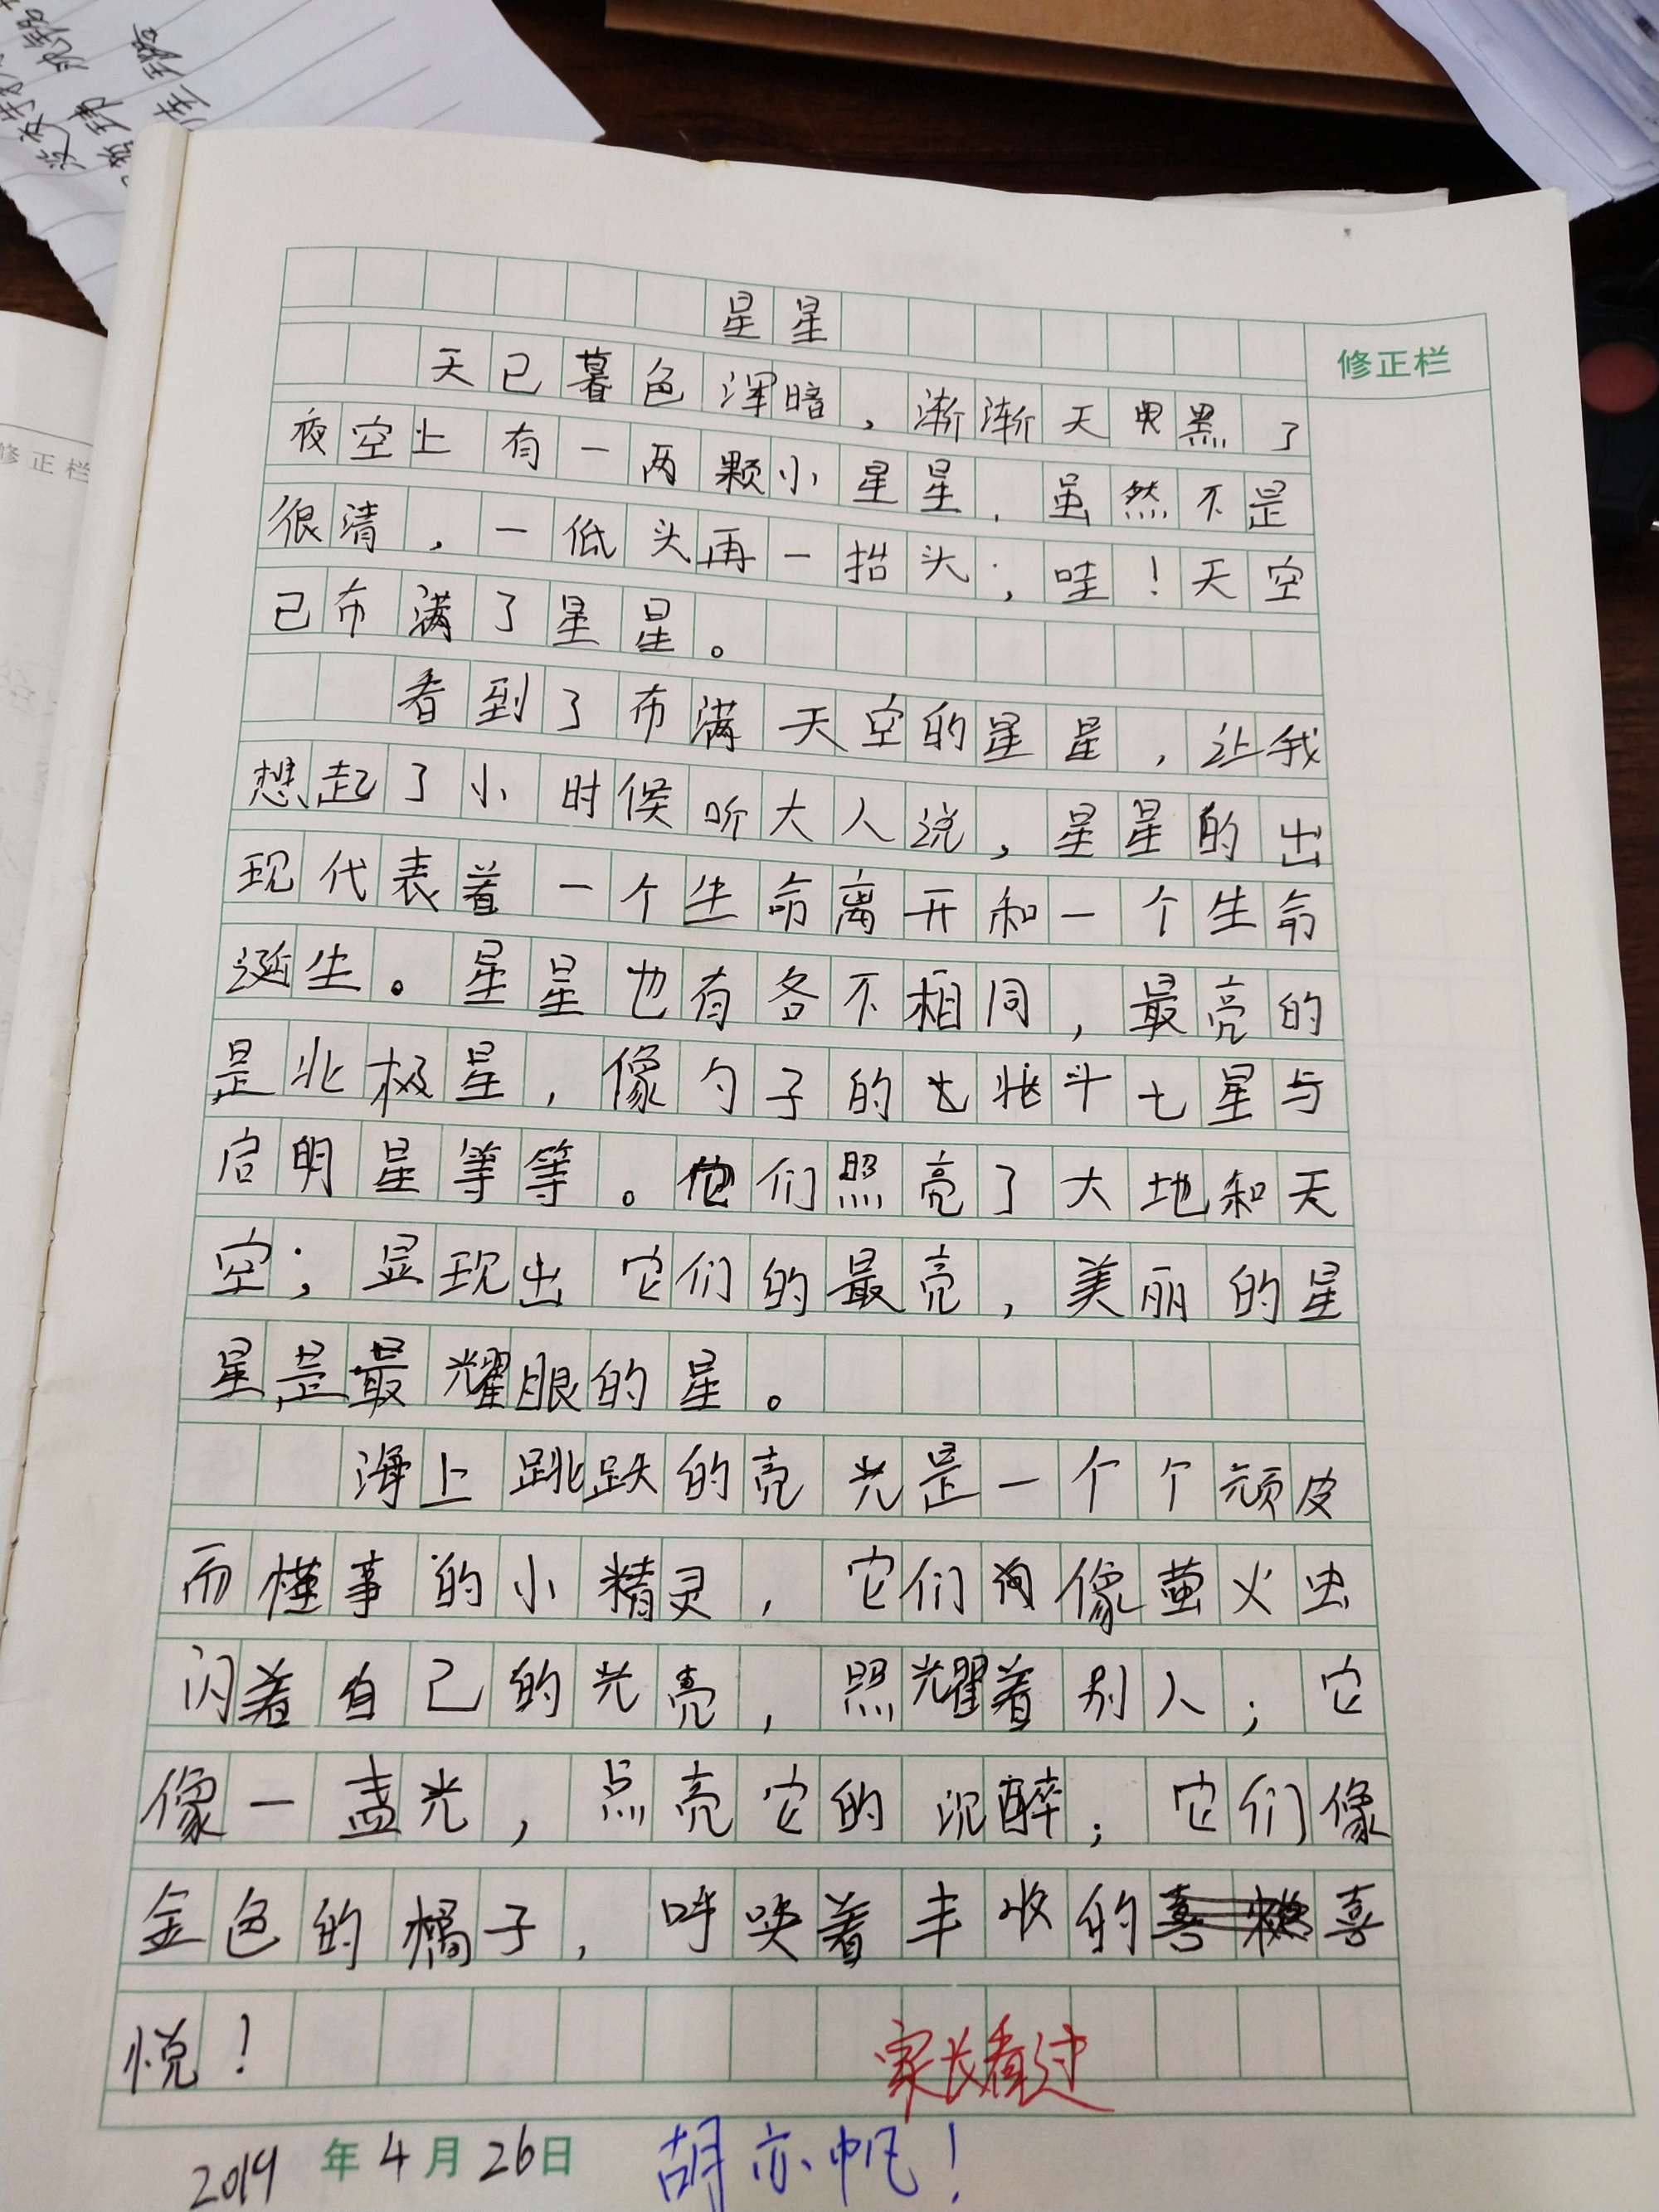 星星
修正栏
天已暮色浑暗，渐渐天黑了
夜空上有一两颗小星星，虽然不是
很清，一低头再一抬头，哇！天空
已布满了星星。
看到了布满天空的星星，让我
想起了小时候听大人说，星星的出
现代表着一个生命离开和一个生命
诞生。星星也有各不相同，最亮的
是北极星，像勺子的北斗七星与
启明星等等。他们照亮了大地和天
空；显现出它们的最亮，美丽的星
星是最耀眼的星。
海上跳跃的亮光是一个个顽皮
而懂事的小精灵，它们像萤火虫
闪着自己的光亮，照耀着别人；它
像一盏光，点亮它的沉醉；它们像
金色的橘子，呼唤着丰收的喜
悦！
家长看过
2019年4月26日 胡亦帆！
修正栏